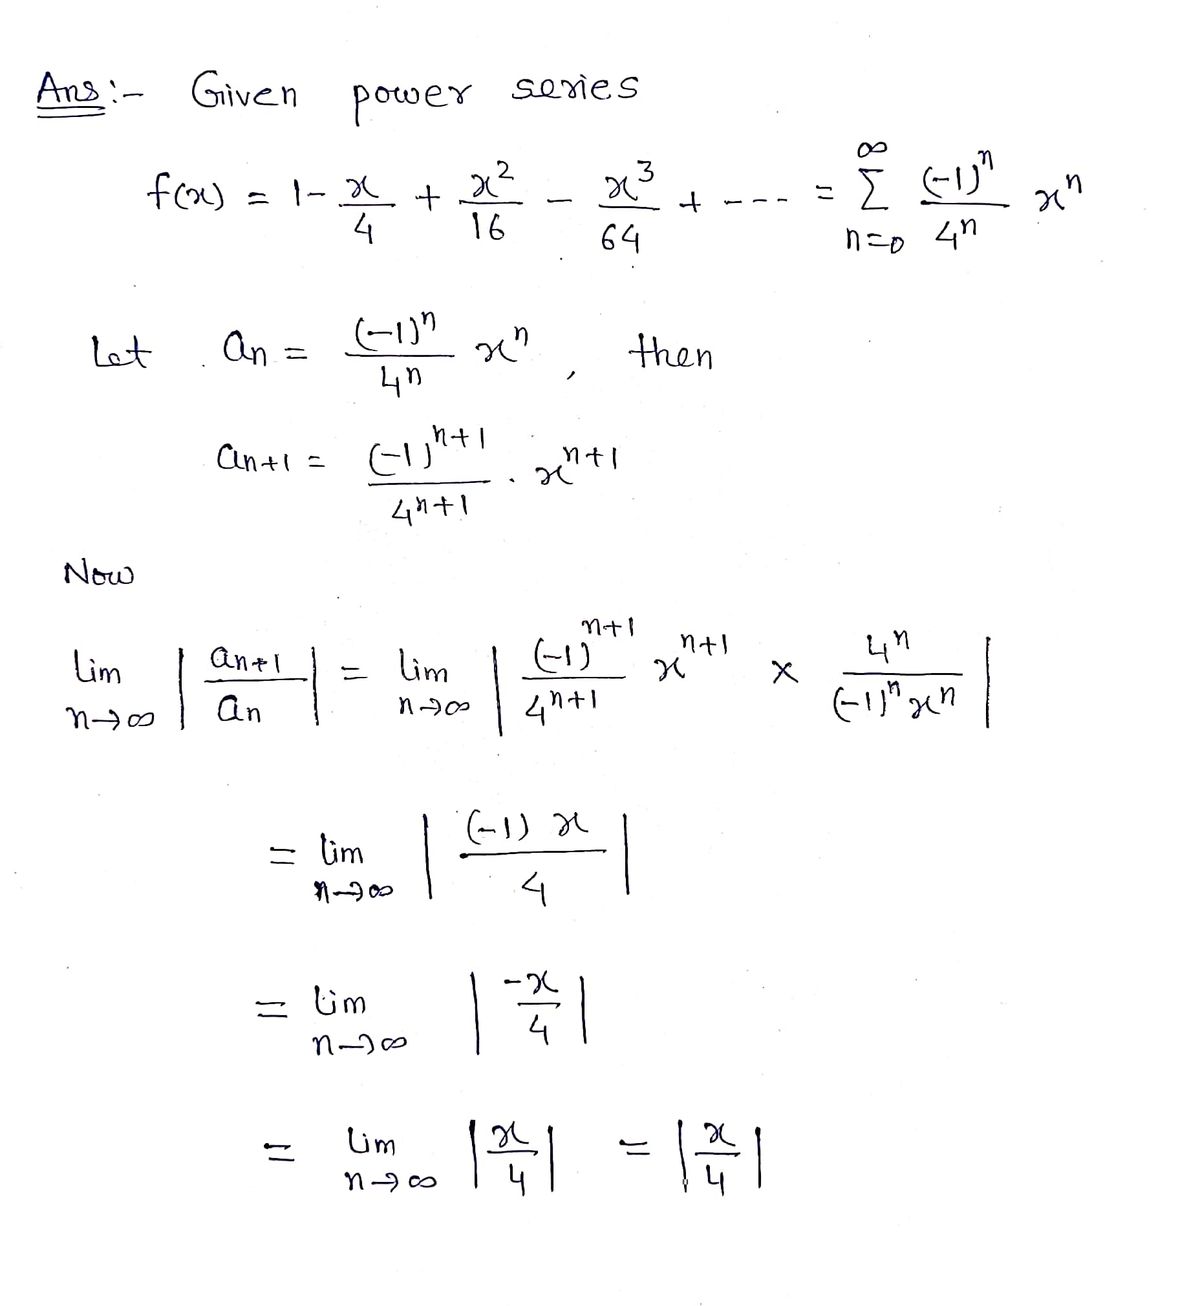 Ans :- Given power series
f(x) = 1 - x/4 + x²/16 - x³/64 + ---- = ∑_{n=0}^{∞} (-1)ⁿ/4ⁿ xⁿ
Let aₙ = (-1)ⁿ/4ⁿ xⁿ , then
aₙ₊₁ = (-1)ⁿ⁺¹/4ⁿ⁺¹ · xⁿ⁺¹
Now
lim_{n→∞} |aₙ₊₁/aₙ| = lim_{n→∞} |(-1)ⁿ⁺¹/4ⁿ⁺¹ xⁿ⁺¹ × 4ⁿ/(-1)ⁿxⁿ|
= lim_{n→∞} |(-1) x/4|
= lim_{n→∞} |-x/4|
= lim_{n→∞} |x/4| = |x/4|